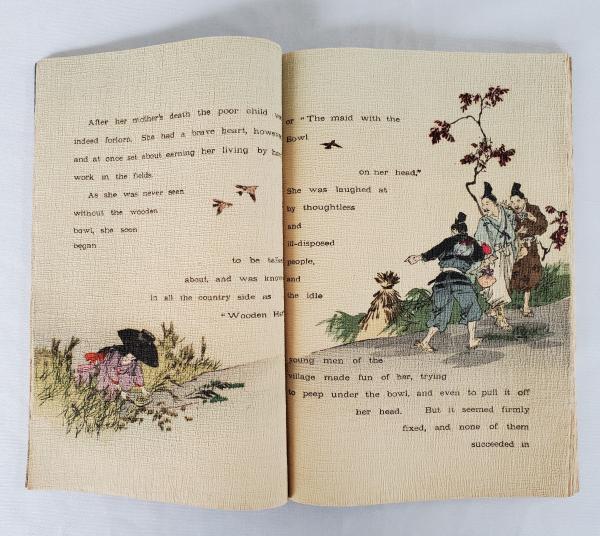 After her mother's death the poor child
indeed forlorn. She had a brave heart,
and at once set about earning her living by
work in the fields.
As she was never seen
without the wooden
bowl, she soon
began
to be
about, and was
in all the country side as
"Wooden
or "The maid with the
Bowl
on her head,"
She was laughed at
by thoughtless
and
ill-disposed
people,
and
the idle
young men of the
village made fun of her, trying
to peep under the bowl, and even to pull it off
her head. But it seemed firmly
fixed, and none of them
succeeded in